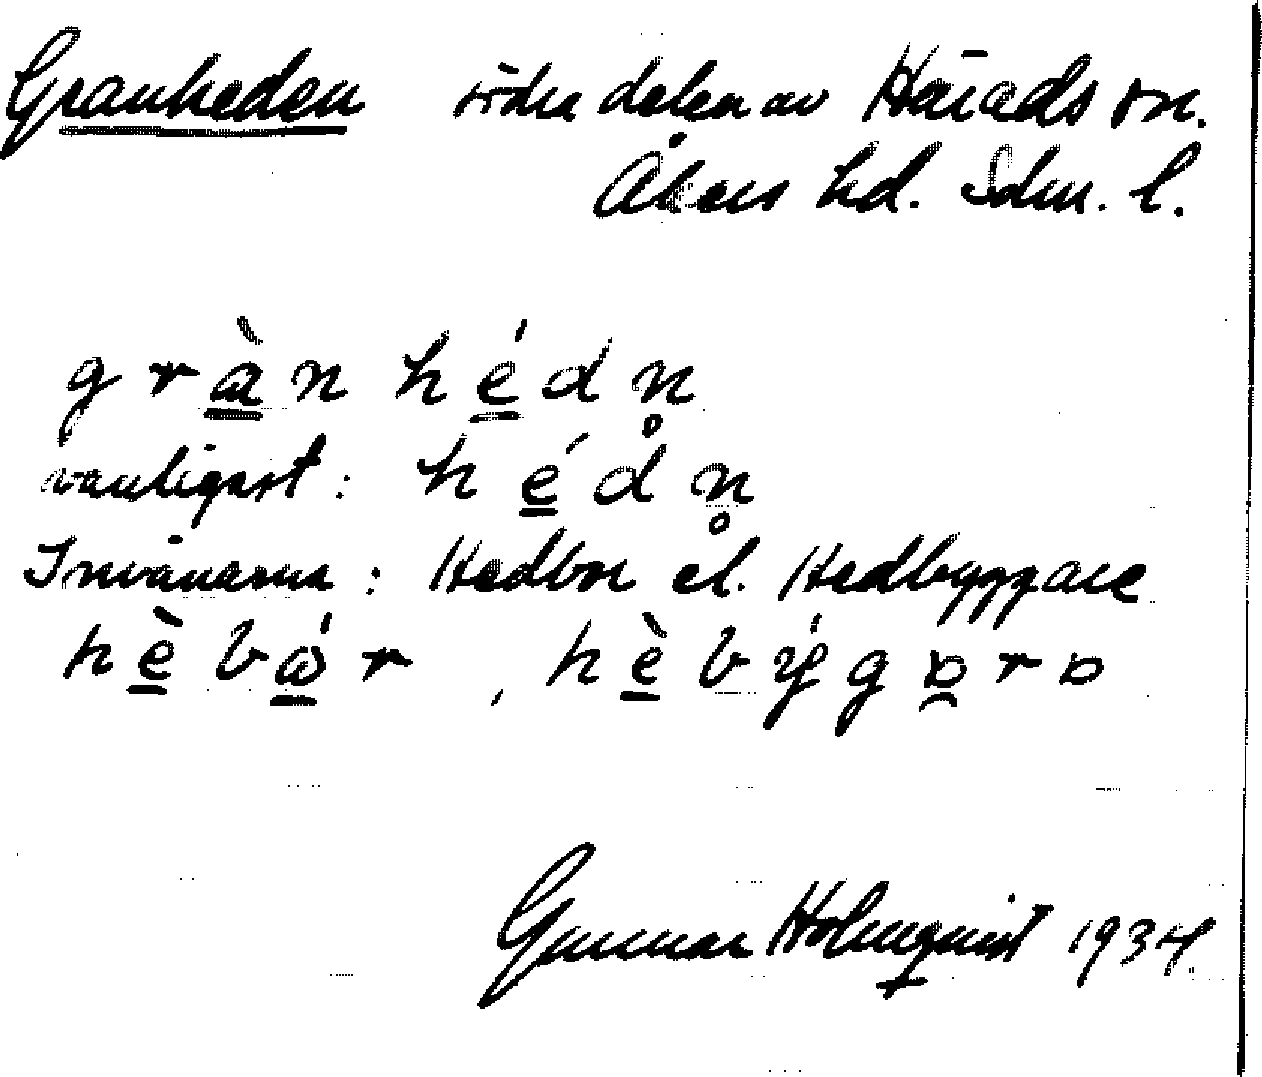 Granheden södra delen av Häråds sn.
Åkers hd. Sdm. l.
grà̱n hé̱dn̥
vanligast: hé̱dn̥
Invånarna: Hedbor el. Hedbyggare
hè̱bώ̱r, hè̱býgɒ̯rɒ
Gunnar Holmquist 1934